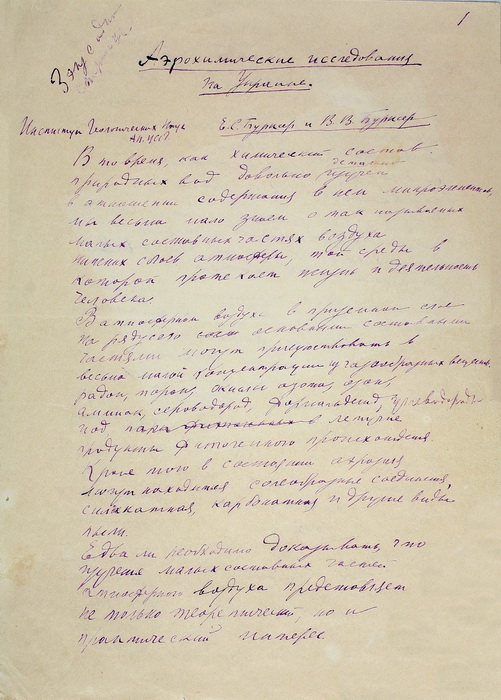 1
Аэрохимические исследования
на Украине.
Институт Геологических Наук
АН УССР
Е.С. Бурксер и В.В. Бурксер
В то время, как химический состав
природных вод довольно изучен
в отношении содержания в нем микроэлементов,
мы весьма мало знаем о так называемых
малых составных частях воздуха
нижних слоев атмосферы, той среды в
которой протекает жизнь и деятельность
человека.
В атмосферном воздухе в приземном слое
на ряду со всеми основными составными
частями могут присутствовать в
весьма малой концентрации газообразных
радон, торон, окислы азота, озон,
аммиак, сероводород, формальдегид, углеводороды
иод и летучие
продукты фитогенного происхождения.
Кроме того в состоянии аэрозоля
могут находится солеобразные соединения,
силикатная, карбонатная и другие виды
пыли.
Едва ли необходимо доказывать, что
изучение малых составных частей
атмосферного воздуха представляет
не только теоретический, но и
практический интерес